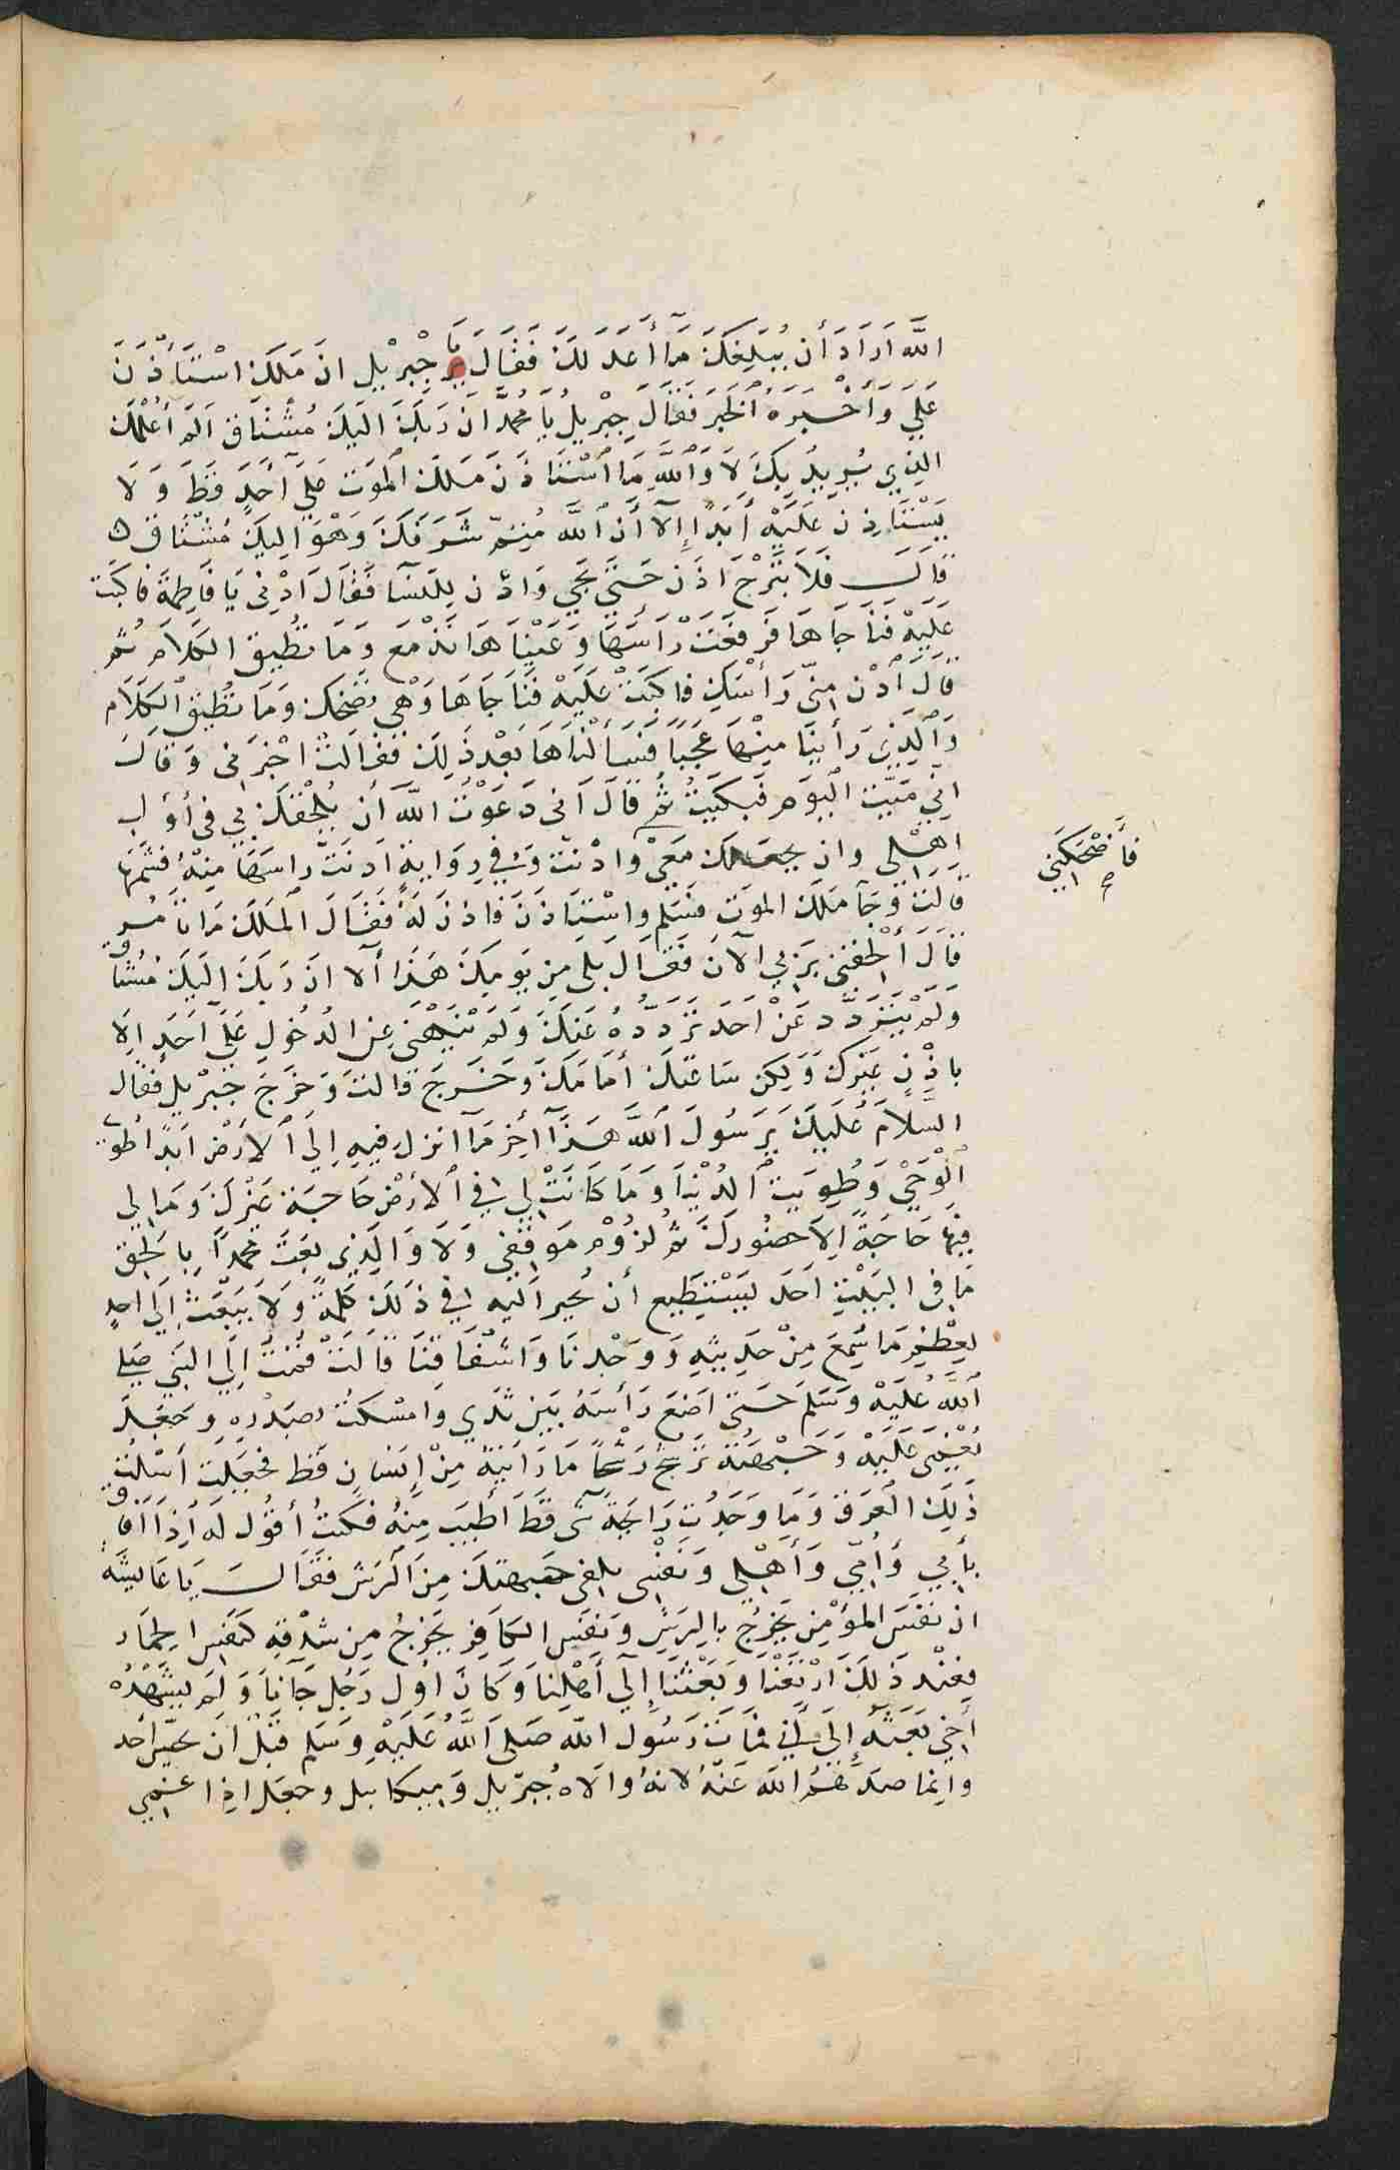 اللَّه ارَادَ أن يُبَلِّغكَ مَآ أعَدّ لكَ فَقَالَ يَا جِبْرِيْل انَ مَلكَ اسْتَأذَنَ
عَلَيَّ وَأَخْبَرَهُ الْخَبَرَ فَقَالَ جِبْرِيلُ يَا مُحَمَّدُ انَ رَبكَ اليَكَ مُشْتَاق ألم أعْلمك
الذِي يُرِيدُ بِكَ لَا وَاللَّهِ مَا اسْتَاذَنَ مَلكَ الْمَوت عَلَى أَحَدٍ قَطَ وَلَا
يَسْتَاذِن عَلَيْهِ أَبَدًا إِلآ أَن اللَّه مُتِمّ شَرَفكَ وَهْوَ اليكَ مُشْتَاق ه
قَالَ فَلَا تَبْرَحْ اذَن حَتَّى يَجِي وَاذن لِلنسَآ فَقَالَ ادْنِى يَا فَاطِمَة فَاكَبَّت
عَلَيْهِ فَنَاجَاهَا فَرفَعَتْ رَأسَهَا وَعَيْنَاهَا تَدْمَع وَمَا تطِيق الكَلَام ثُم
قَالَ ادْن مِنّى رَأسَكِ فاكَبَّتْ عَلَيْهِ فَنَاجَاهَا وَهْي تضْحك وَمَا تطِيق الكَلَام
وَالَّذِي رَأيَنَا مِنْهَا عَجَبًا فَسَأَلنَاهَا بَعْد ذَلِكَ فَقَالَتْ اخْبَرَنى وَقَالَ
انّي مَيّت الْيَوْم فَبَكَيتُ ثُم قَالَ انى دَعَوْتُ اللّهَ أن يُلْحقَك بِي فى أوّل
اهْلِي وان يجعَلك مَعي وادْنت وَفي رِوَايةٍ ادَنَتْ راسَهَا مِنْهُ فشَمّهَا
فأَضْحَكَنِي صح
قَالَت وَجَآ مَلك الموت فسَلم واسْتاذَنَ فاذنَ لهُ فَقَالَ الملَك مَا تَأمُر
قَالَ ألْحقْنِي بِرَبِي الآنَ فَقَالَ بَلى مِن يَومِكَ هَذَا أَلا انَ رَبكَ اليَكَ مُشْتَاق
وَلَمْ يَتَرَدَّد عَنْ أحَدَ تَرَدّدهُ عَنكَ وَلَم يَنْهَنى عن الدخُولِ عَلَى أَحَدٍ إلا
باذْنٍ غَيْرِكَ وَلِكن سَاعَتكَ أَمَامَكَ وخَرجَ قالت وَخَرَجَ جِبْرِيل فَقَال
السَّلَام عَلَيْكَ يَرَسُولَ اللَّه هَذَآ آخِر مَآ انزل فِيهِ إلَى الأرَضْ ابَدًا طُوي
الْوَحْي وَطُوِيَتْ الدُنْيَا وَمَا كَانَتْ لِي فِي الأرَضْ حَاجَة غَيْرِكَ وَمَا لِي
فِيهَا حَاجَة الَا حضُورِكَ ثم لزُوْم مَوقِفِي وَلَا وَالَّذِي بَعَثَ محمدًا بِالْحَق
مَا فِى البَيْتِ احَد يَسْتَطِيع أن يحِير اليْهِ فِي ذَلكَ كَلِمةً وَلَا يَبعَثَ إلَى احدٍ
لعِظَم مَا يَسْمَع مِنْ حَدِيثهِ وَوَجْدنَا وَاشْفَاقنَا قَالَتْ فقُمْتُ إلَى النَبي صَلى
اللَّهُ عَلَيْه وَسَلَمَ حَتى أضَع رَأسَهُ بَيْن ثَدْيي وَامسَكتُ بصَدْرِهِ وجَعَلَ
يُغْمَى عَلَيْهِ وَجَبْهَتهُ تَرشحُ رَشْحاً مَا رَايَتهُ مِنْ إنسَان قَط فجعَلت أسْلت
ذَلِكَ الْعَرَق وَمَا وَجَدْت رَايحَة شى قَط أَطيَب مِنهُ فكنتُ أقُول لَه إِذَا افَاق
بأبِي وَأُمّي وَأَهْلِي وَنَفْسى مَا تلقى جَبهتكَ مِن الرَشْ فَقَالَ يَا عَايشَة
ان نَفَسَ المُؤْمِن يَخْرُجُ بالرَشْحِ وَنَفَس الكَافِر يخْرُجُ مِن شِدْقهِ كَنَفس الحِمَار
فَعْند ذَلِكَ ارْتَعْنَا وَبَعْثنَا إلَى أَهْلِنَا وَكَانَ أول رَجُل جَآنَا وَلَم يَشْهَدْه
أَخِي بَعَثَه إِلَيَّ أبِي فمَاتَ رَسُول اللّه صَلى اللَّهُ عَلَيْهِ وَسَلم قبْل أن يجيَ أحَد
وانما صَدّهُمُ اللّه عَنْهُ لانهُ ولَاهُ جِبْرِيل وَميكايل وجعَل اذا اغمي